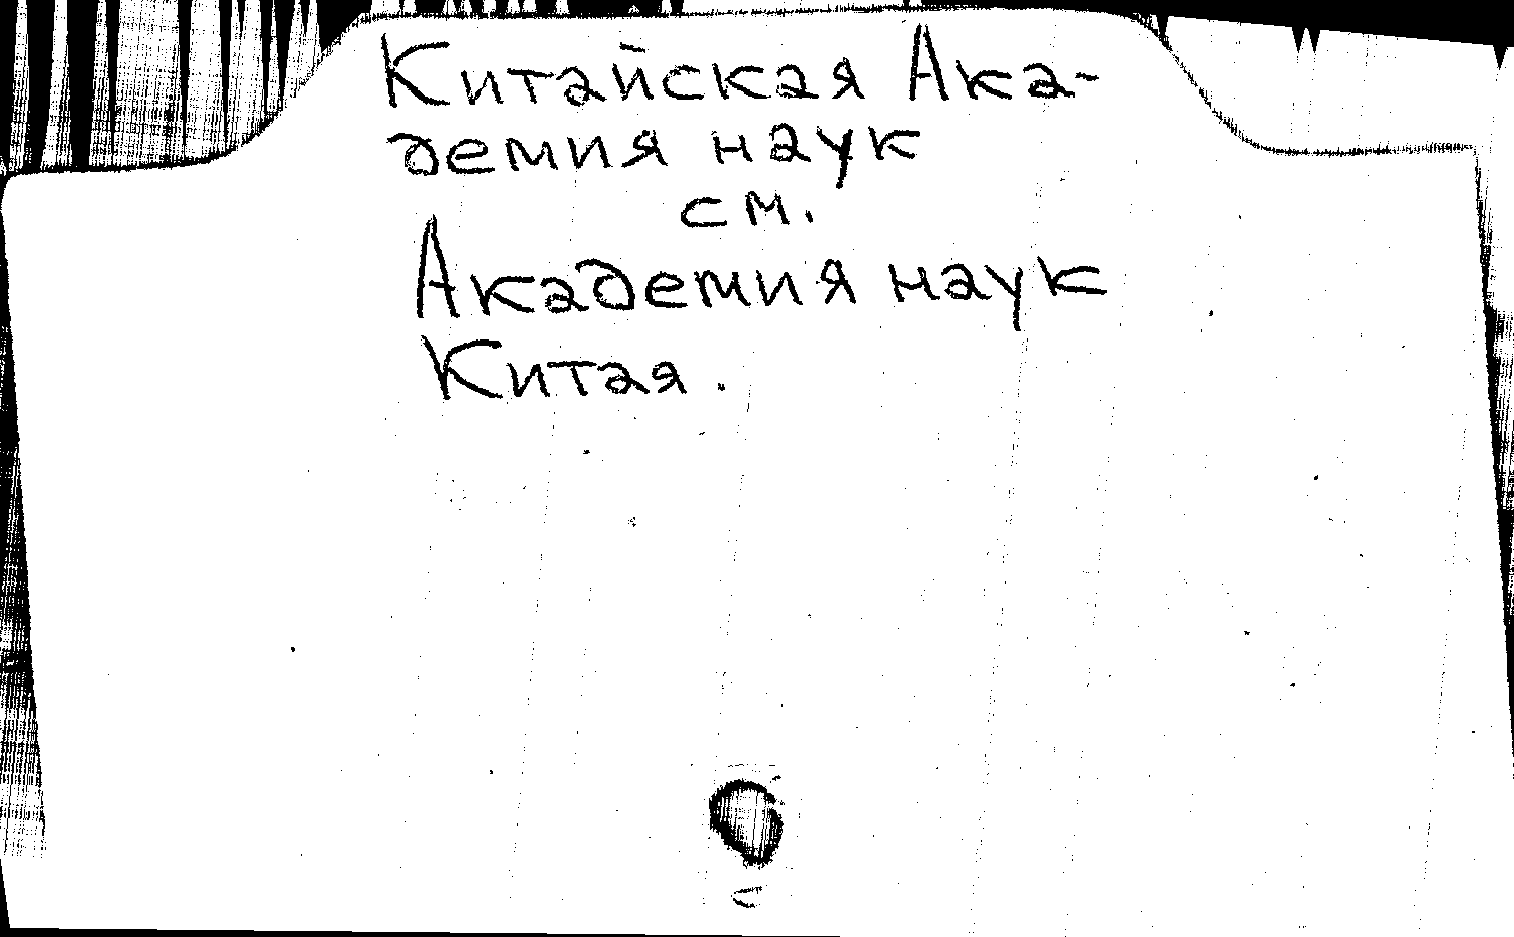 Китайская Ака-
демия наук
см.
Академия наук
Китая.